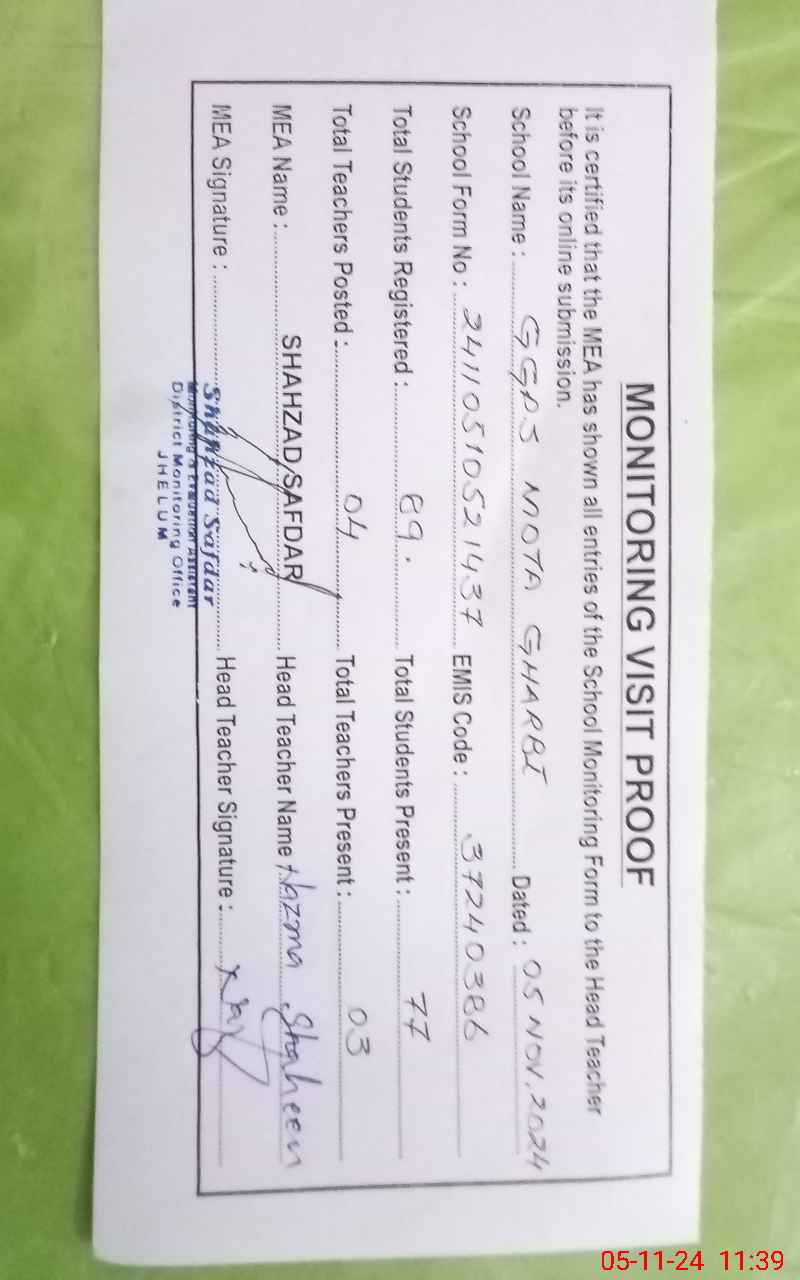 MONITORING VISIT PROOF
It is certified that the MEA has shown all entries of the School Monitoring Form to the Head Teacher
before its online submission.
School Name : GGPS MOTA GHARBI Dated : 05 NOV, 2024
School Form No : 2411051052 1437 EMIS Code : 37240386
Total Students Registered : 89. Total Students Present : 77
Total Teachers Posted : 04 Total Teachers Present : 03
MEA Name : SHAHZAD SAFDAR Head Teacher Name : Nazma Shaheen
MEA Signature : Head Teacher Signature :
Shahzad Safdar
Monitoring & Evaluation Assistant
District Monitoring Office
JHELUM
05-11-24 11:39